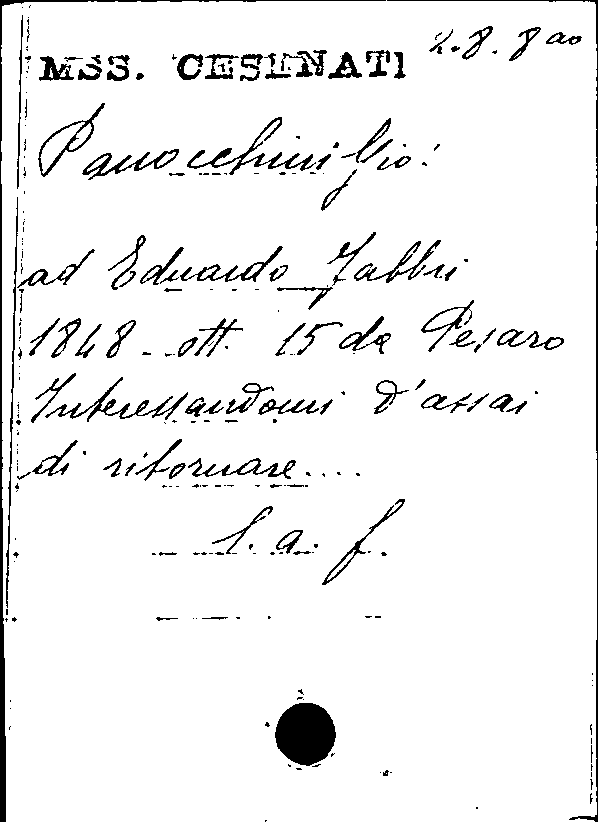 MSS. CESENATI 2.8.8ao
Panocchini Gio:
ad Eduardo Fabbri
1848 - ott. 15 da Pesaro
Interessandomi d'assai
di ritornare....
l. a. f.